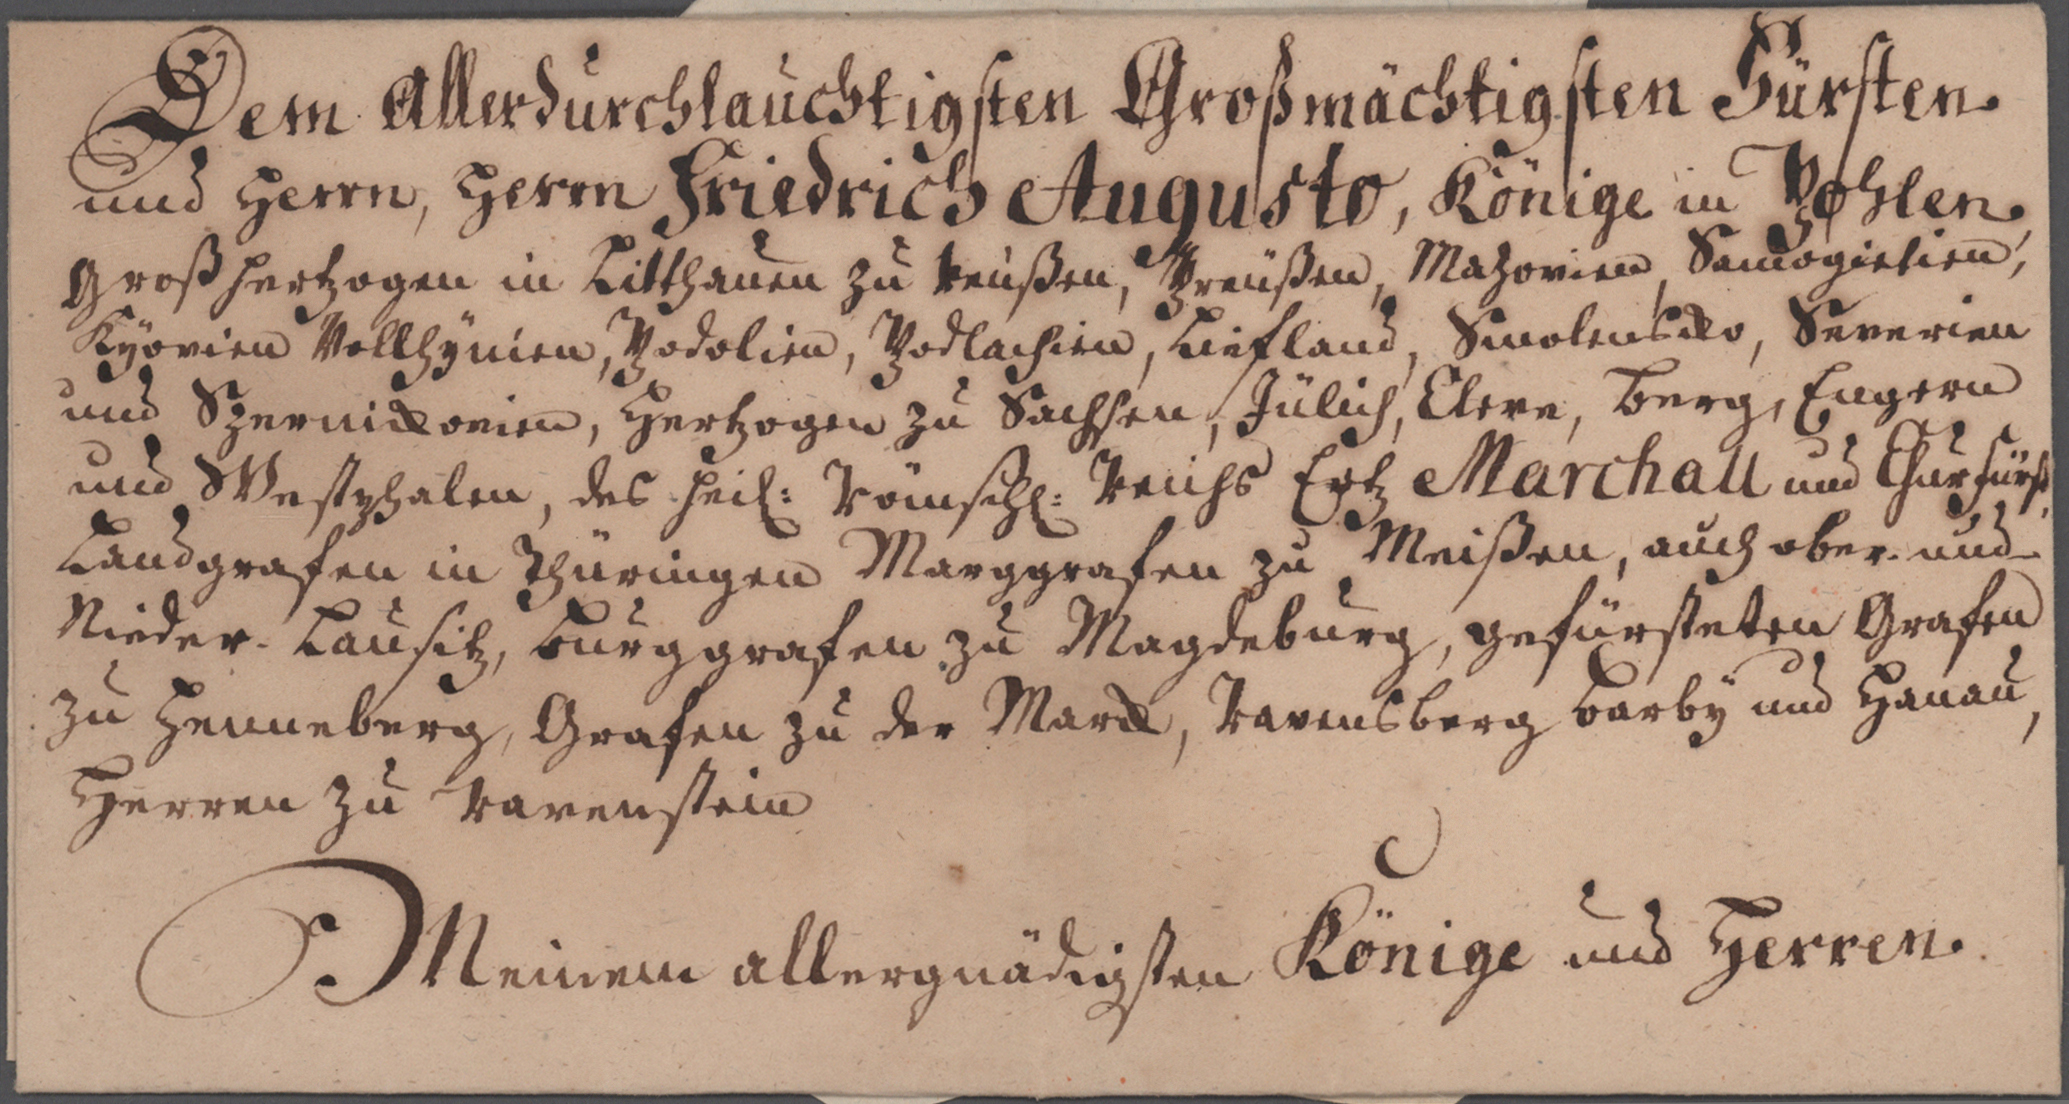 Dem Allerdurchlauchtigsten Großmächtigsten Fürsten
und Herrn, Herrn Friedrich Augusto, Könige in Pohlen,
Großhertzogen in Litthauen zu Reußen, Preüßen, Mazovien, Samogietien,
Kyovien Vollhÿnien, Podolien, Podlachien, Liefland, Smolensko, Severien
und Szernikovien, Hertzogen zu Sachsen, Jülich, Cleve, Berg, Engern
und Westphalen, des Heil: Römischl: Reichs Ertz Marchall und Churfürst,
Landgrafen in Thüringen Marggrafen zu Meißen, auch ober- und
Nieder-Lausitz, Burggrafen zu Magdeburg, gefürsteten Grafen
zu Henneberg, Grafen zu der Marck, Ravensberg Barbÿ und Hanau,
Herren zu Ravenstein
Meinem allergnädigsten Könige und Herren.